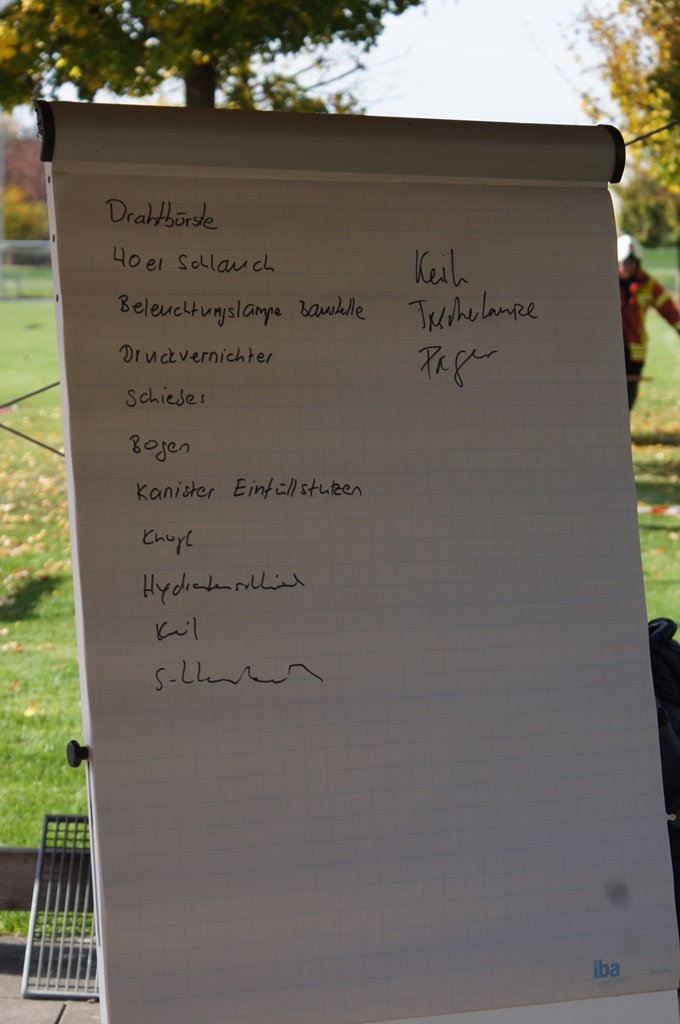 Drahtbürste
40er Schlauch
Beleuchtungslampe Baustelle
Druckvernichter
Schieber
Bogen
Kanister Einfüllstutzen
Hydrantenschild
Keil
Keile
Taschenlampe
Pager
iba